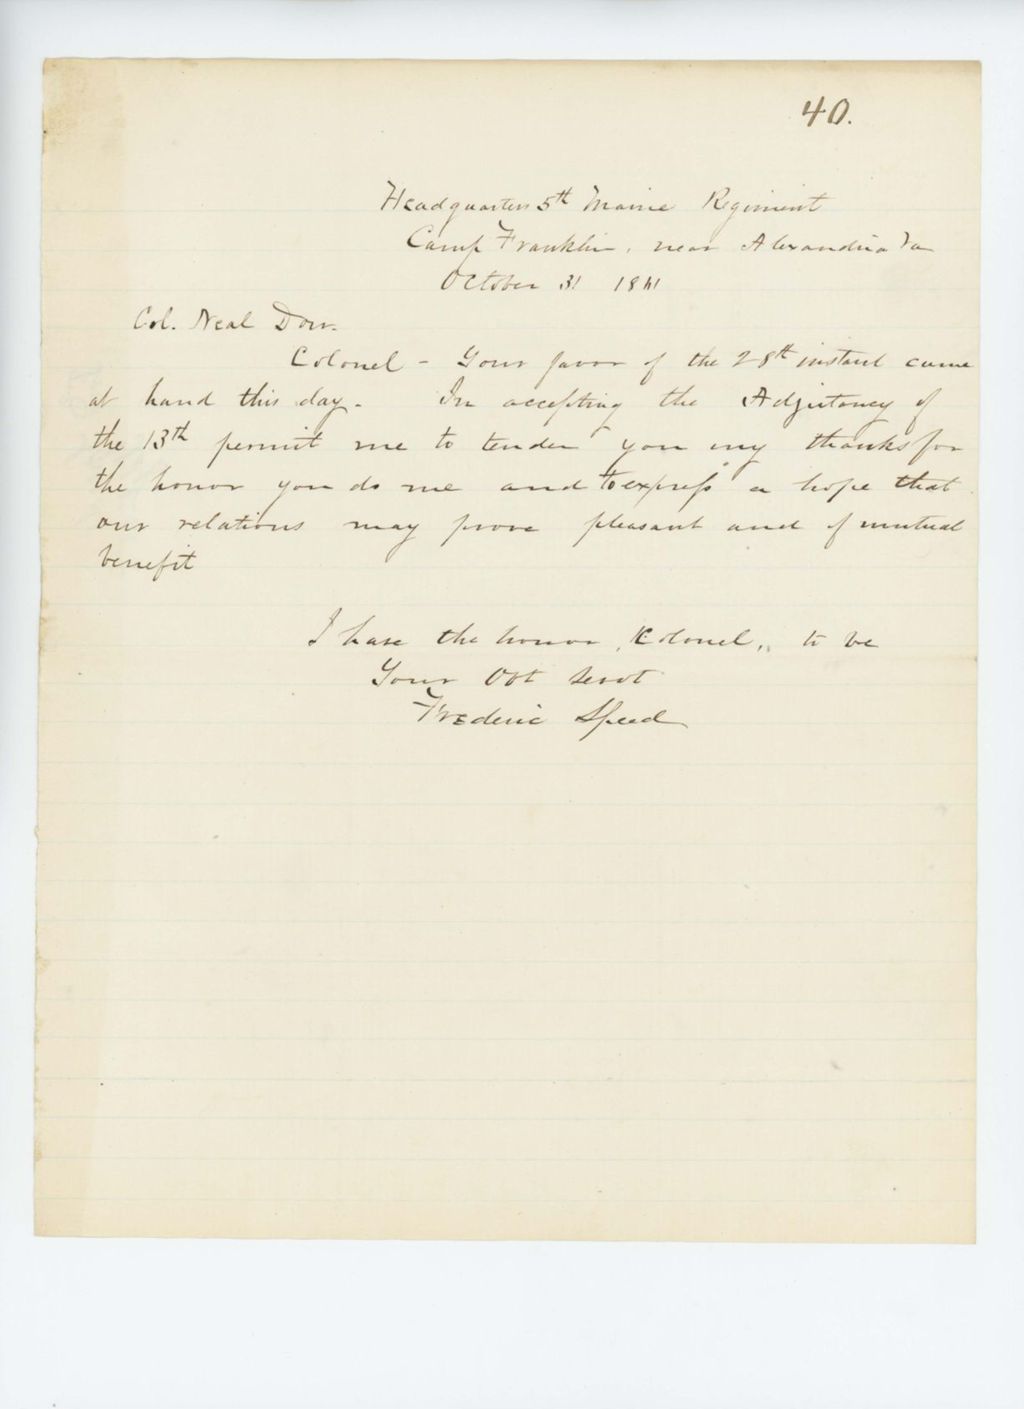 40.
Headquarters 5th Maine Regiment
Camp Franklin, near Alexandria Va
October 31 1861
Col. Neal Dow.
Colonel - Your favor of the 28th instant came
at hand this day. In accepting the Adjutancy of
the 13th permit me to tender you my thanks for
the honor you do me and to express a hope that
our relations may prove pleasant and of mutual
benefit
I have the honor, Colonel, to be
Your Obt Servt
Frederic Speed